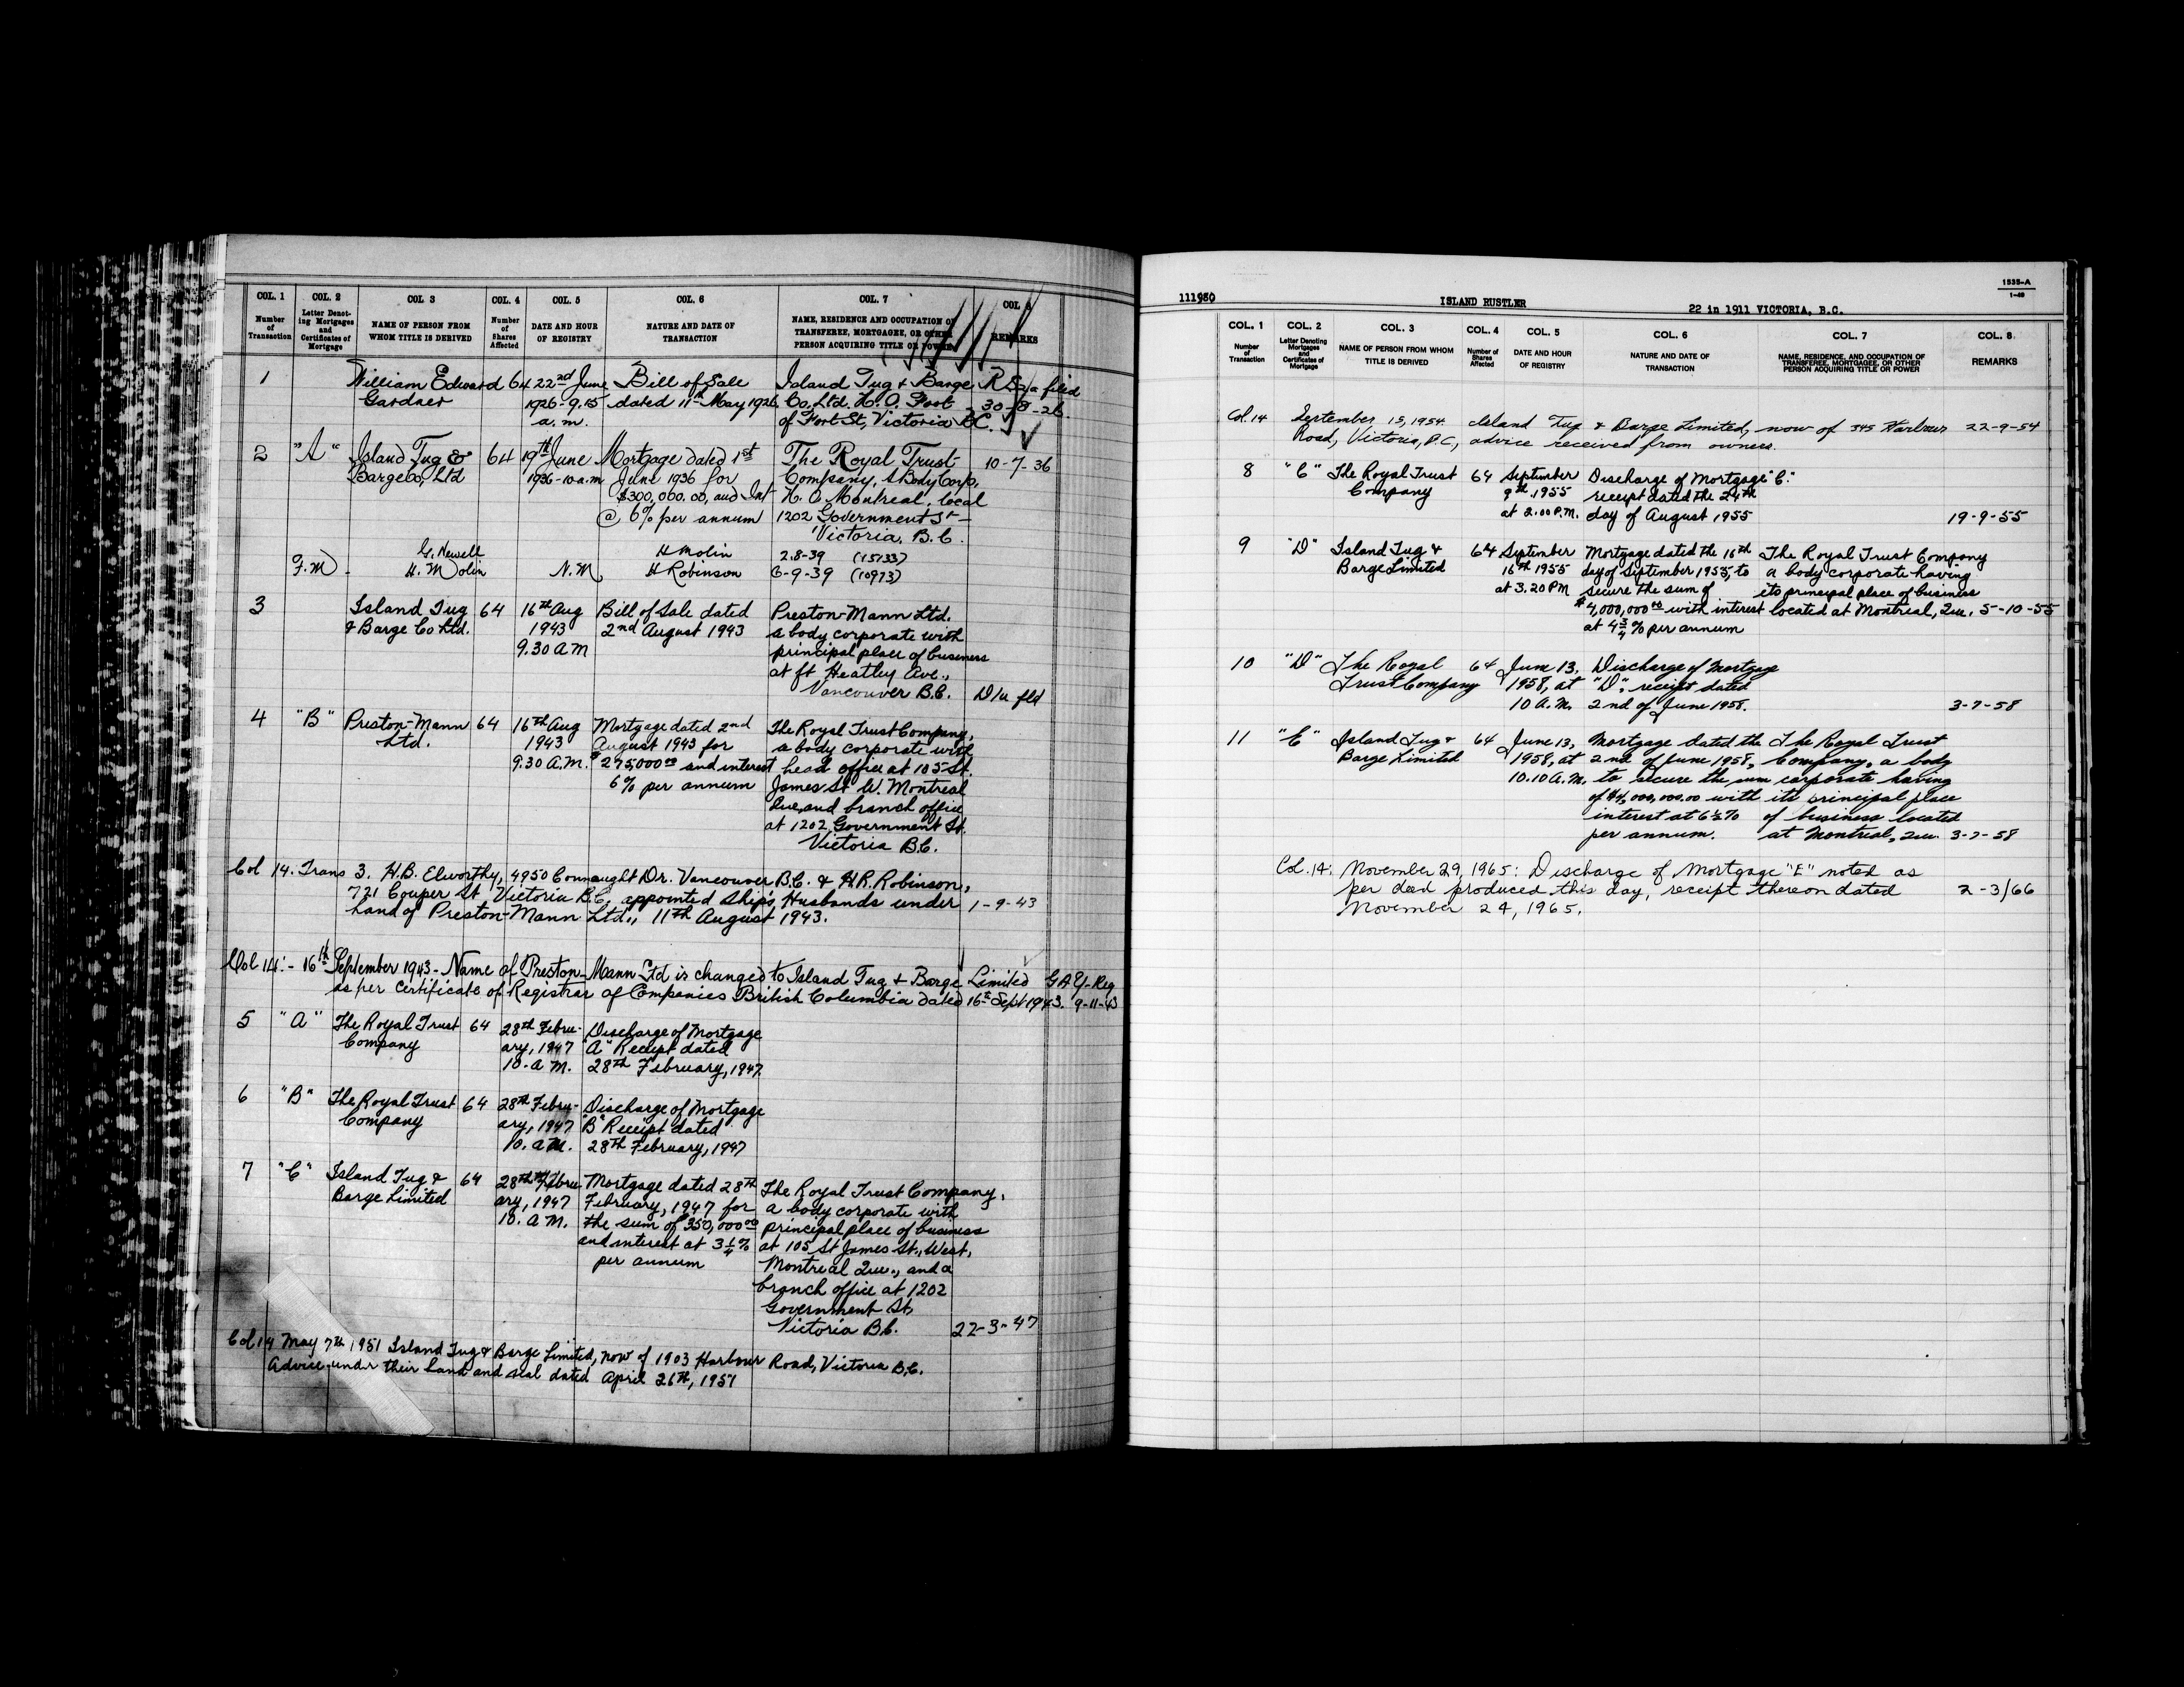 COL. 1 COL. 2 COL. 3 COL. 4 COL. 5 COL. 6 COL. 7 COL. 8
Number of Transaction
Letter Denoting Mortgages and Certificates of Mortgage
NAME OF PERSON FROM WHOM TITLE IS DERIVED
Number of Shares Affected
DATE AND HOUR OF REGISTRY
NATURE AND DATE OF TRANSACTION
NAME, RESIDENCE AND OCCUPATION OF TRANSFEREE, MORTGAGEE, OR OTHER PERSON ACQUIRING TITLE OR POWER
REMARKS
1 William Edward 64 22nd June Bill of Sale Island Tug & Barge filed
Gardner 1926-9.15 dated 11th May 1926 Co. Ltd. H.O. Foot 30-8-26.
a.m. of Fort St, Victoria B.C.
2 "A" Island Tug & 64 19th June Mortgage dated 1st The Royal Trust 10-7-36
Barge Co, Ltd 1936-10 a.m June 1936 for Company, A Body Corp,
$300,000.00, and Int H.O. Montreal, local
@ 6% per annum 1202 Government St-
Victoria, B.C.
G. Newell H Molin 2.8-39 (15733)
F.M. - H. Molin N.M. H Robinson 6-9-39 (10973)
3 Island Tug 64 16th Aug Bill of Sale dated Preston-Mann Ltd.
& Barge Co Ltd. 1943 2nd August 1943 a body corporate with
9.30 A M principal place of business
at ft Heatley Ave.,
Vancouver B.C. D/u fld
4 "B" Preston-Mann 64 16th Aug Mortgage dated 2nd The Royal Trust Company,
Ltd. 1943 August 1943 for a body corporate with
9.30 A.M. $275,000.00 and interest head office at 105 St.
6% per annum James St W. Montreal
Que, and branch office
at 1202 Government St.
Victoria B.C.
Col 14. Trans 3. H.B. Elworthy, 4950 Connaught Dr. Vancouver B.C. & H.R. Robinson,
721 Couper St Victoria B.C. appointed Ship's Husbands under 1-9-43
hand of Preston-Mann Ltd., 11th August 1943.
Col 14:- 16th September 1943 - Name of Preston-Mann Ltd is changed to Island Tug & Barge Limited
as per Certificate of Registrar of Companies British Columbia dated 16th Sept 1943. 9-11-43
5 "A" The Royal Trust 64 28th Febru- Discharge of Mortgage
Company ary, 1947 "A" Receipt dated
10. A M. 28th February, 1947.
6 "B" The Royal Trust 64 28th Febru- Discharge of Mortgage
Company ary, 1947 "B" Receipt dated
10. A M. 28th February, 1947
7 "C" Island Tug & 64 28th Febru- Mortgage dated 28th The Royal Trust Company,
Barge Limited ary, 1947 February, 1947 for a body corporate with
10. A M. the sum of 350,000.00 principal place of business
and interest at 3¼% at 105 St James St., West,
per annum Montreal Que., and a
branch office at 1202
Government St,
Victoria B.C. 22-3-47
Col 14 May 7th, 1951 Island Tug & Barge Limited, now of 1903 Harbour Road, Victoria B.C.
Advice under their hand and seal dated April 26th, 1951
1535-A
1-49
111980 ISLAND RUSTLER 22 in 1911 VICTORIA, B.C.
COL. 1 COL. 2 COL. 3 COL. 4 COL. 5 COL. 6 COL. 7 COL. 8
Number of Transaction
Letter Denoting Mortgages and Certificates of Mortgage
NAME OF PERSON FROM WHOM TITLE IS DERIVED
Number of Shares Affected
DATE AND HOUR OF REGISTRY
NATURE AND DATE OF TRANSACTION
NAME, RESIDENCE, AND OCCUPATION OF TRANSFEREE, MORTGAGEE, OR OTHER PERSON ACQUIRING TITLE OR POWER
REMARKS
Col. 14 September 15, 1954 Island Tug & Barge Limited, now of 345 Harbour 22-9-54
Road, Victoria, B.C., advice received from owners.
8 "C" The Royal Trust 64 September Discharge of Mortgage "C."
Company 9th 1955 receipt dated the 29th
at 2.00 P.M. day of August 1955 19-9-55
9 "D" Island Tug & 64 September Mortgage dated the 16th The Royal Trust Company
Barge Limited 16th 1955 day of September 1955, to a body corporate having
at 3.20 PM secure the sum of its principal place of business
$4,000,000.00 with interest located at Montreal, Que. 5-10-55
at 4¾% per annum
10 "D" The Royal 64 June 13, Discharge of Mortgage
Trust Company 1958, at "D", receipt dated
10 A.M. 2nd of June 1958. 3-7-58
11 "E" Island Tug & 64 June 13, Mortgage dated the The Royal Trust
Barge Limited 1958, at 2nd of June 1958, Company, a body
10.10 A.M. to secure the sum corporate having
of $4,000,000.00 with its principal place
interest at 6½% of business located
per annum. at Montreal, Que. 3-7-58
Col. 14: November 29, 1965: Discharge of Mortgage "E" noted as
per deed produced this day, receipt thereon dated 2-3/66
November 24, 1965.